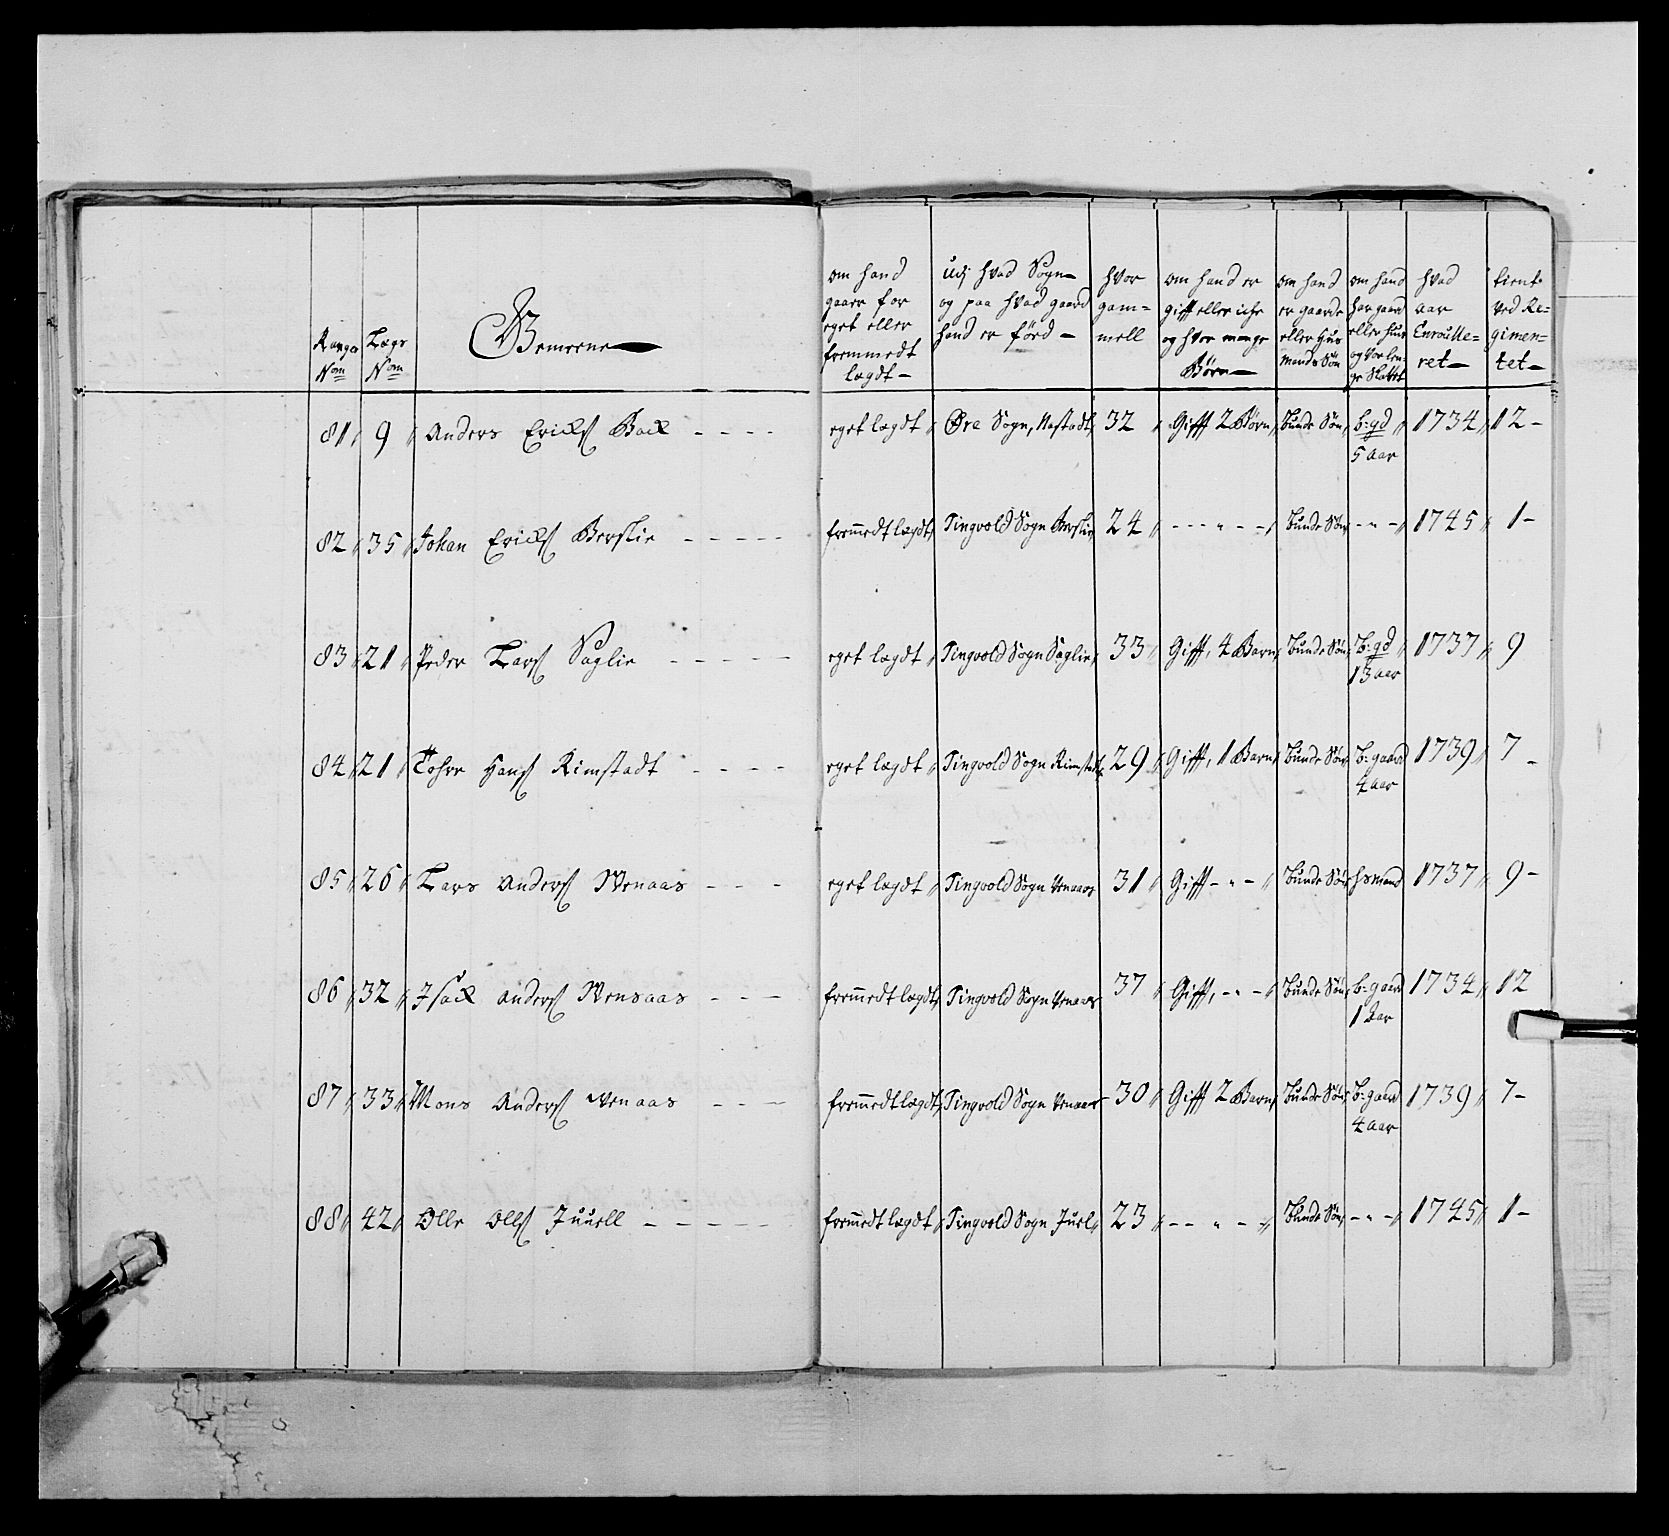 Range Nom | Lægs Nom | Gemeene | om hand gaaer for eget eller fremmedt lægdt | udj hvad Sogn og paa hvad gaard hand er förd | hvor gam= mell | om hand er gift eller iche og hvor mange Børn | om hand er gaards eller Hus mands Søn | om hand har gaard eller Huus og hvor len= ge | hvad aar Enroulle= ret | tient ved Re= gimen= tet
81 | 9 | Anders Ericks Back | eget lægdt | Øre Sogn, Nastadt | 32 | Gifft 2 Børn | Bunde Søn | b: gd 5 aar | 1734 | 12
82 | 35 | Johan Ericks Berslie | fremmedt lægdt | Tingvold Sogn Berslie | 24 | - - - " - - | Bunde Søn | - " - | 1745 | 1
83 | 21 | Peder Lars Saglie | eget lægdt | Tingvold Sogn Saglie | 33 | Gifft, 4 Barn | Bunde Søn | b: gd 13 aar | 1737 | 9
84 | 21 | Tohre Hans Rimstadt | eget lægdt | Tingvold Sogn Rimstadt | 29 | Gifft, 1 Barn | Bunde Søn | b: gaard 4 aar | 1739 | 7
85 | 26 | Lars Anders Wenaas | eget lægdt | Tingvold Sogn Wenaas | 31 | Gifft - " - | Bunde Søn | hsmand | 1737 | 9
86 | 32 | Isack Anders Wensaas | fremmedt lægdt | Tingvold Sogn Wenaas | 37 | Gifft, - " - | Bunde Søn | b: gaard 1 aar | 1734 | 12
87 | 33 | Mons Anders Wenaas | fremmedt lægdt | Tingvold Sogn Wenaas | 30 | Gifft 2 Barn | Bunde Søn | b: gaard 4 aar | 1739 | 7
88 | 42 | Olle Olls Juuell | fremmedt lægdt | Tingvold Sogn Juel | 23 | - - " - | Bunde Søn | - " - | 1745 | 1